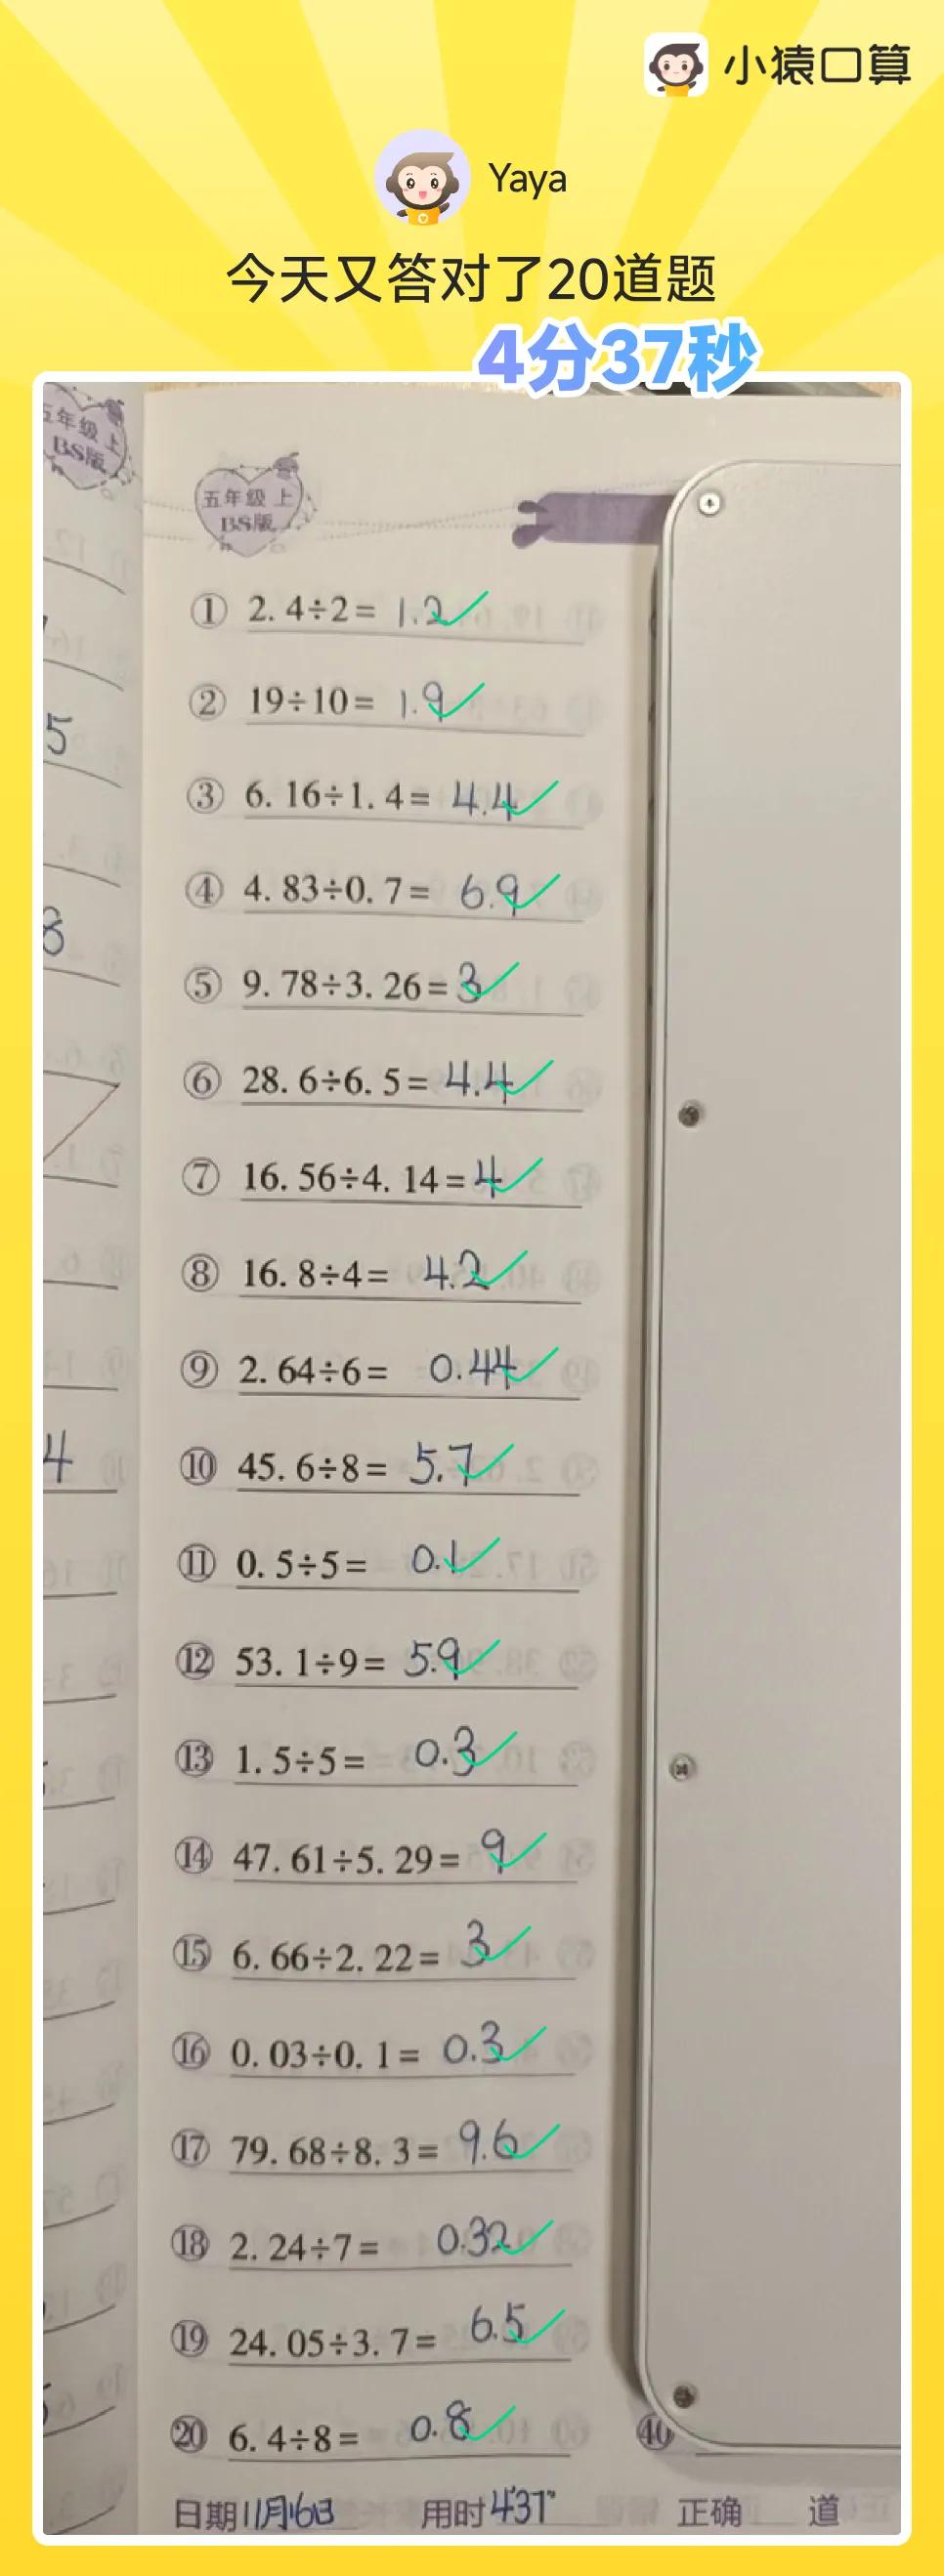 小猿口算
Yaya
今天又答对了20道题
4分37秒
五年级 上
BS版
五年级 上
BS版
5
8
4
① 2.4÷2= 1.2
② 19÷10= 1.9
③ 6.16÷1.4= 4.4
④ 4.83÷0.7= 6.9
⑤ 9.78÷3.26= 3
⑥ 28.6÷6.5= 4.4
⑦ 16.56÷4.14= 4
⑧ 16.8÷4= 4.2
⑨ 2.64÷6= 0.44
⑩ 45.6÷8= 5.7
⑪ 0.5÷5= 0.1
⑫ 53.1÷9= 5.9
⑬ 1.5÷5= 0.3
⑭ 47.61÷5.29= 9
⑮ 6.66÷2.22= 3
⑯ 0.03÷0.1= 0.3
⑰ 79.68÷8.3= 9.6
⑱ 2.24÷7= 0.32
⑲ 24.05÷3.7= 6.5
⑳ 6.4÷8= 0.8
㊵
日期11月16日 用时4'37" 正确 道